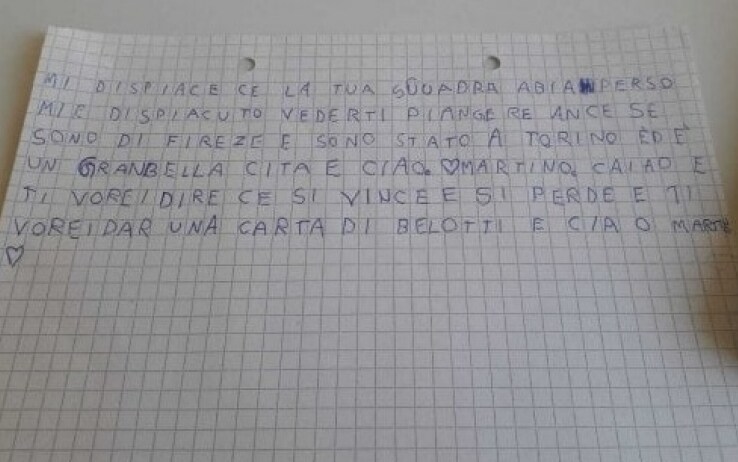 MI DISPIACE CE LA TUA SQUADRA ABIA PERSO
MI E DISPIACUTO VEDERTI PIANGERE ANCE SE
SONO DI FIREZE E SONO STATO A TORINO ED È
UN GRANBELLA CITA E CIAO. ♡MARTINO. CAIAO E
TI VOREI DIRE CE SI VINCE E SI PERDE E TI
VOREI DAR UNA CARTA DI BELOTTI E CIAO
♡